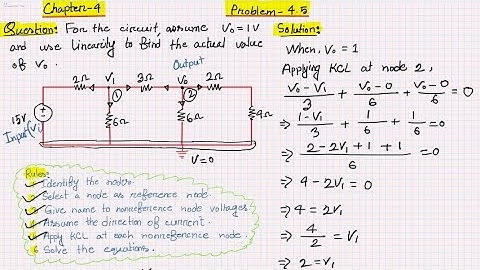 Chapter-4
Problem-4.5
Question: For the circuit, assume V₀=1V
and use linearity to find the actual value
of V₀.
Output
2Ω V₁ 3Ω V₀ 2Ω
① ②
15V
Input(Vi)
6Ω 6Ω 4Ω
V=0
Rules:
1 Identify the nodes.
2 Select a node as reference node.
3 Give name to nonreference node voltages.
4 Assume the direction of current.
5 Apply KCL at each nonreference node.
6 Solve the equations.
Solution:
When, V₀ = 1
Applying KCL at node 2,
(V₀-V₁)/3 + (V₀-0)/6 + (V₀-0)/6 = 0
⇒ (1-V₁)/3 + 1/6 + 1/6 = 0
⇒ (2-2V₁+1+1)/6 = 0
⇒ 4-2V₁ = 0
⇒ 4 = 2V₁
⇒ 4/2 = V₁
⇒ 2 = V₁